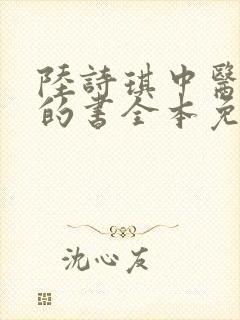 陸詩琪中醫
的書全本免
沈心友